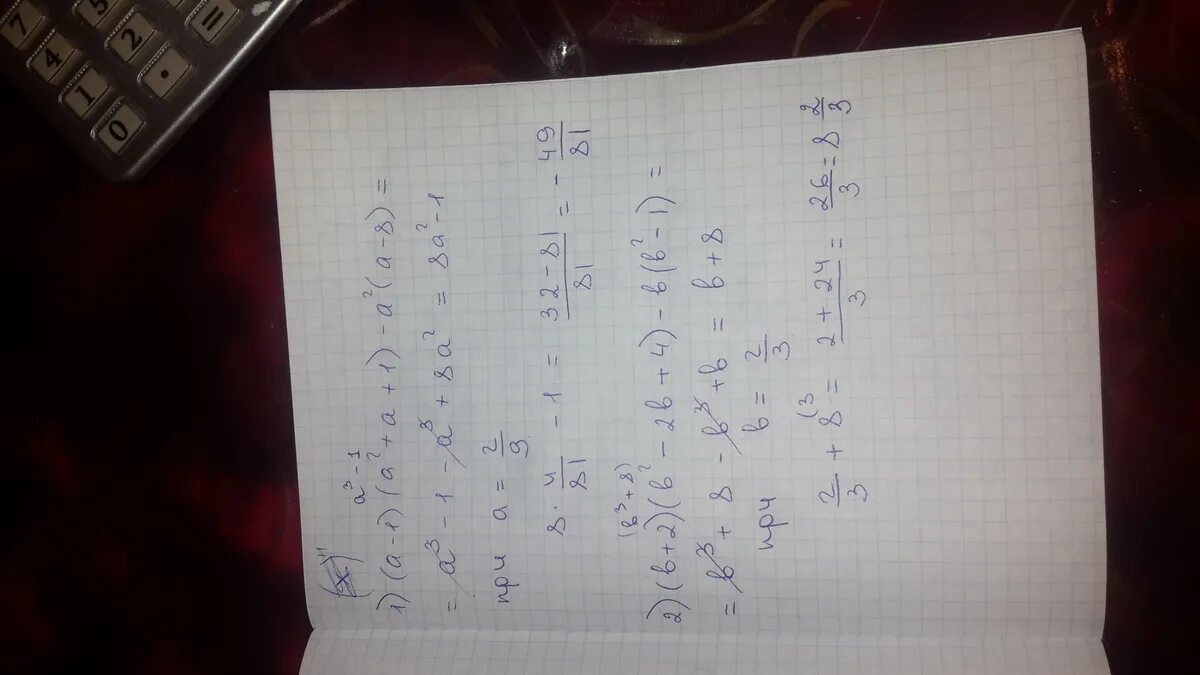 a³-1
1) (a-1)(a²+a+1)-a²(a-8)=
= a³-1-a³+8a² = 8a²-1
при a = 2/9
8 · 4/81 - 1 = (32-81)/81 = - 49/81
(b³+8)
2) (b+2)(b²-2b+4)-b(b²-1)=
= b³+8-b³+b = b+8
при b = 2/3
2/3 + 8(3 = (2+24)/3 = 26/3 = 8 2/3
7
5
4
2
=
1
.
0